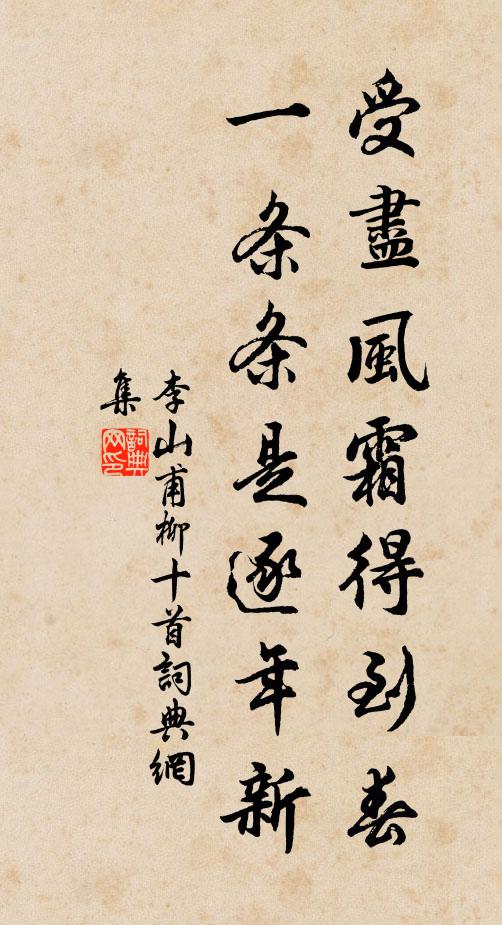 受盡風霜得到春
一条条是逐年新
李山甫柳十首詞典網
集
詞典
网印